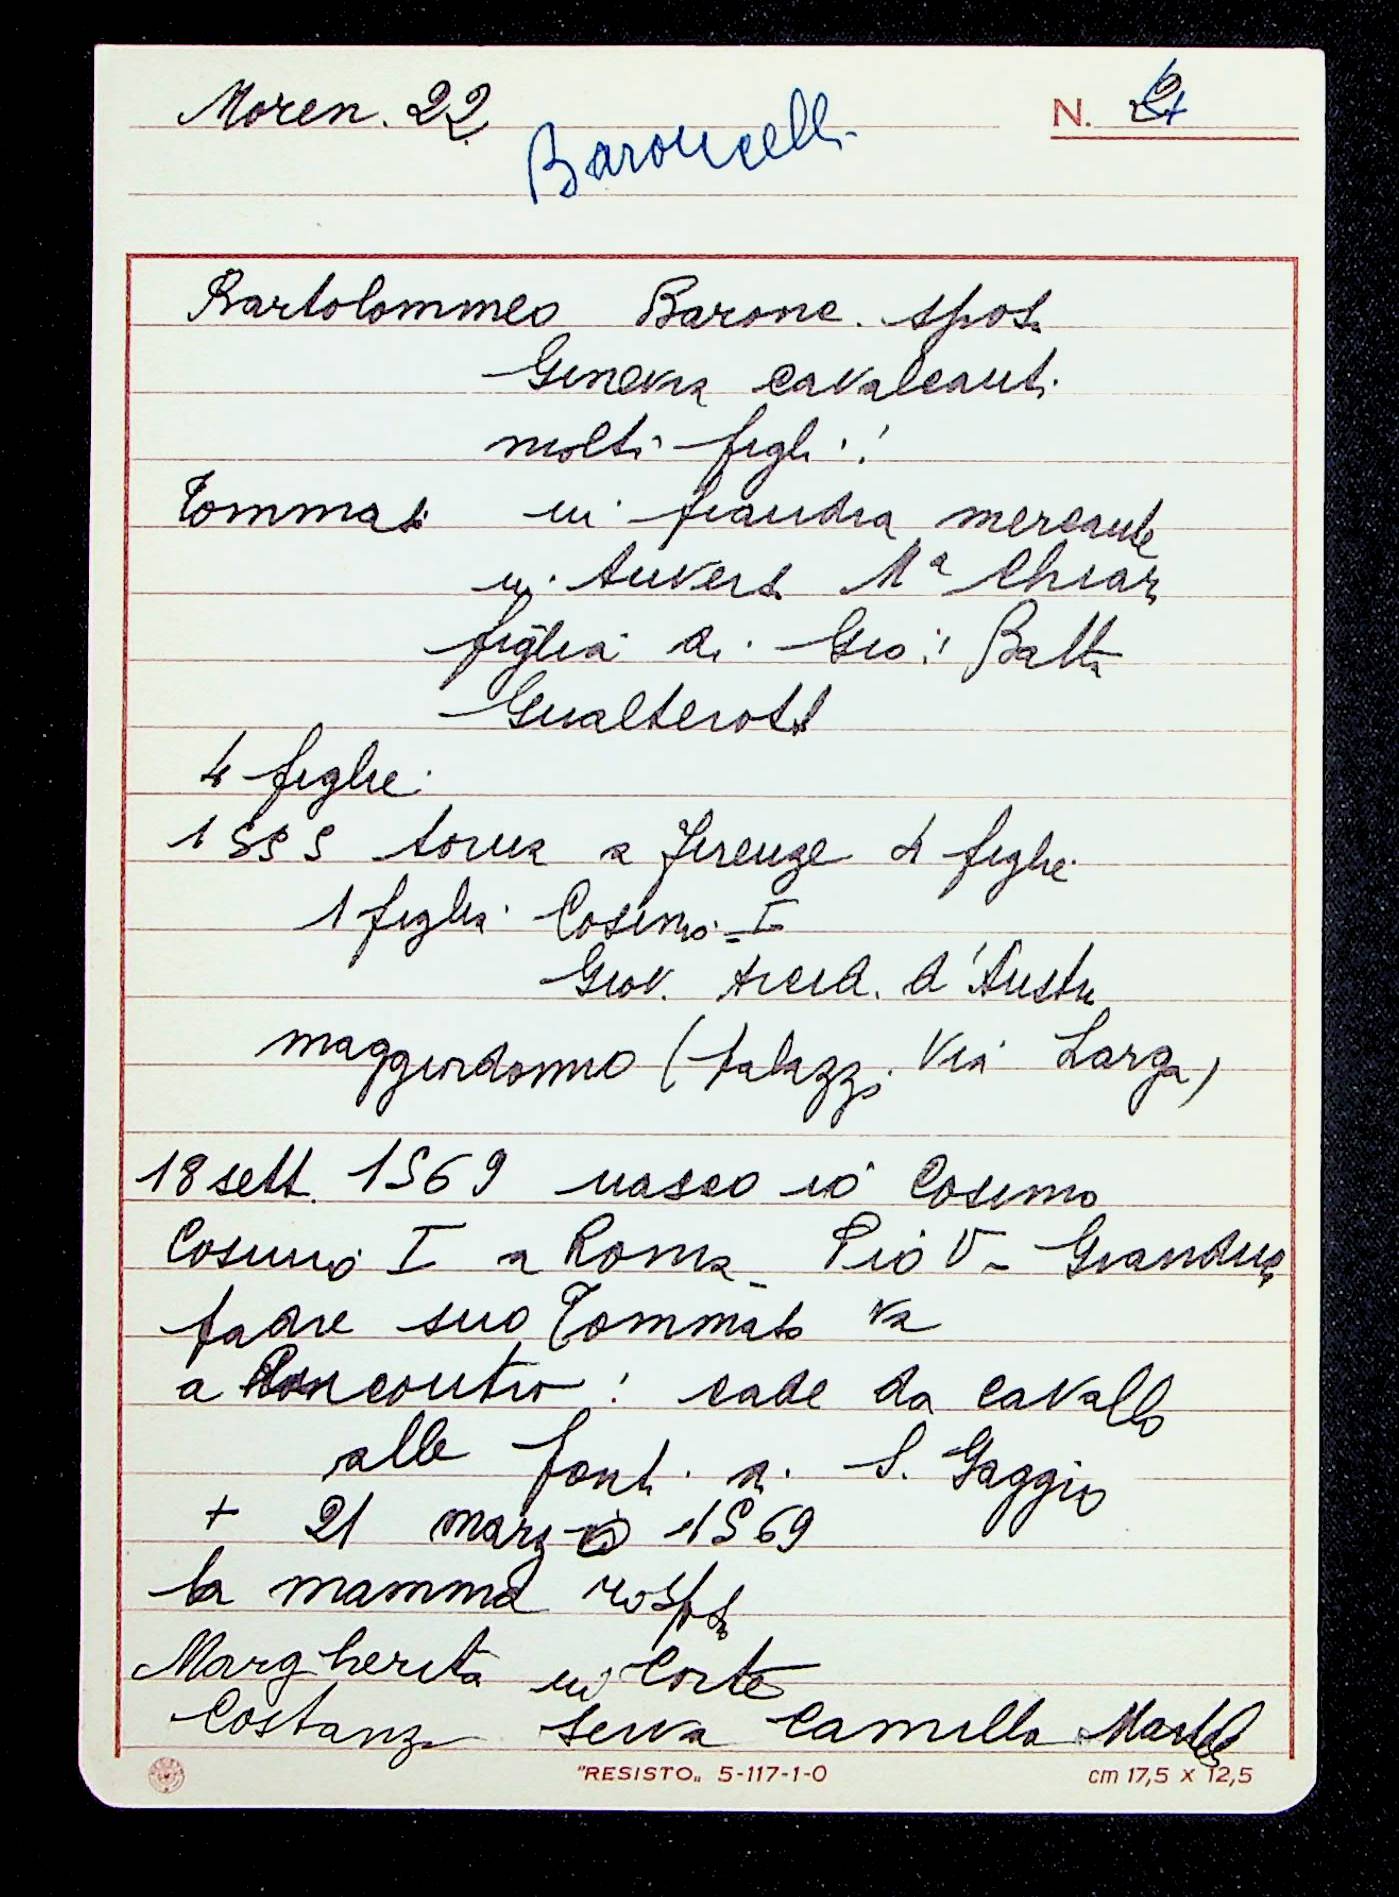 Moren. 22
N. 4
Baroncelli
Bartolommeo Barone. spos.
Ginevra Cavalcanti
molti figli:
Tommaso in fiandra mercante
in Anversa Mª Chiara
figlia di Gio: Batta
Gualterotti
4 figlie:
1555 torna a Firenze 4 figlie
1 figlia Cosimo I
Giov. Arcid. d'Austria
maggiordomo (palazzo Via Larga)
18 sett. 1569 nasceo Cosimo
Cosimo I a Roma - Pio V - Granduca
padre suo Tommaso va
a incontro: cade da cavallo
alle fonti di S. Gaggio
+ 21 marzo 1569
la mamma risposa
Margherita in Corte
Costanza serva Camilla Martelli
"RESISTO" 5-117-1-0
cm 17,5 x 12,5